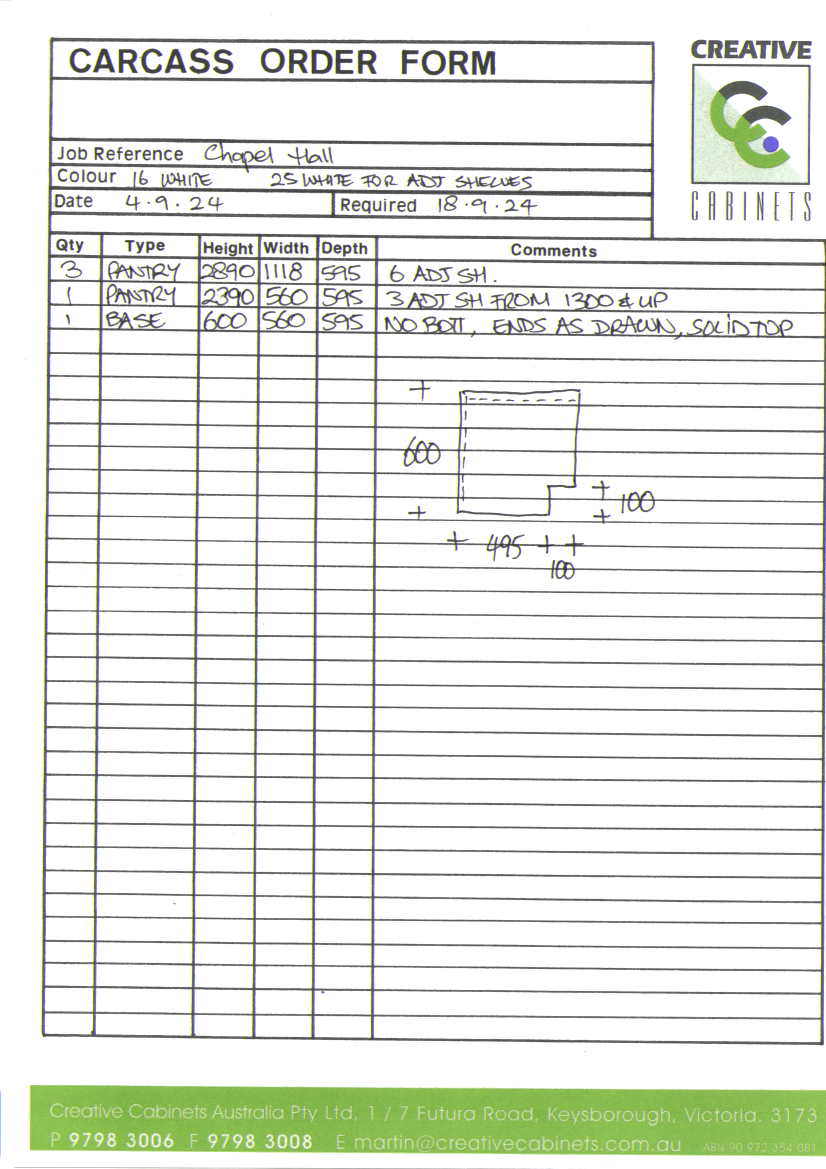 CARCASS ORDER FORM
CREATIVE
CC
CABINETS
Job Reference Chapel Hall
Colour 16 WHITE 25 WHITE FOR ADJ SHELVES
Date 4.9.24 Required 18.9.24
Qty Type Height Width Depth Comments
3 PANTRY 2890 1118 595 6 ADJ SH.
1 PANTRY 2390 560 595 3 ADJ SH FROM 1300 & UP
1 BASE 600 560 595 NO BOTT, ENDS AS DRAWN, SOLID TOP
600
100
495
100
Creative Cabinets Australia Pty Ltd, 1 / 7 Futura Road, Keysborough, Victoria. 3173
P 9798 3006 F 9798 3008 E martin@creativecabinets.com.au ABN 90 972 354 081